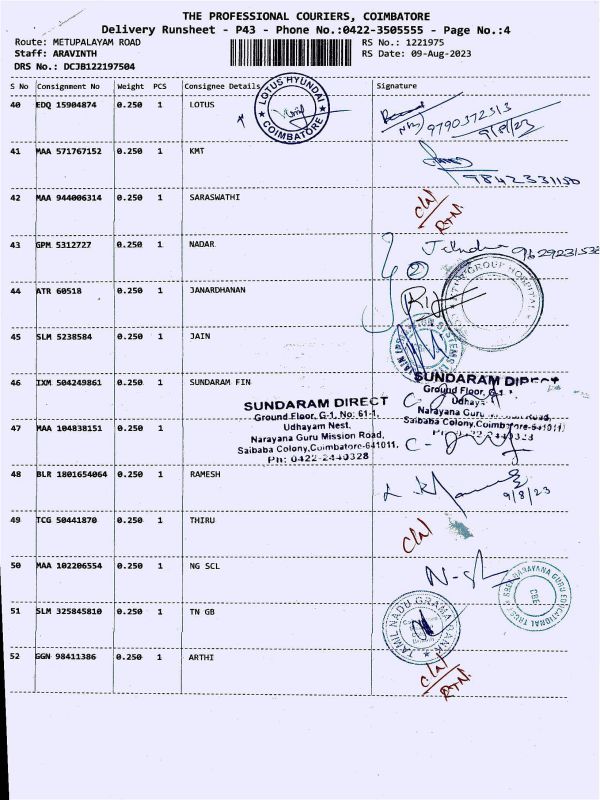 THE PROFESSIONAL COURIERS, COIMBATORE
Delivery Runsheet - P43 - Phone No.:0422-3505555 - Page No.:4
Route: METUPALAYAM ROAD RS No.: 1221975
Staff: ARAVINTH RS Date: 09-Aug-2023
DRS No.: DCJB122197504
S No Consignment No Weight PCS Consignee Details Signature
40 EDQ 15904874 0.250 1 LOTUS
LOTUS HYUNDAI
COIMBATORE
9790372313
9/8/23
41 MAA 571767152 0.250 1 KMT
9842331150
42 MAA 944006314 0.250 1 SARASWATHI
C/N
RTN.
43 GPM 5312727 0.250 1 NADAR
44 ATR 60518 0.250 1 JANARDHANAN
45 SLM 5238584 0.250 1 JAIN
46 IXM 504249861 0.250 1 SUNDARAM FIN
SUNDARAM DIRECT
Ground Floor, G-1, No: 61-1,
Udhayam Nest,
Narayana Guru Mission Road,
Saibaba Colony,Coimbatore-641011.
Ph: 0422-2440328
SUNDARAM DIRECT
Ground Floor, G-1,
Narayana Guru Road,
Saibaba Colony,Coimbatore-641011
47 MAA 104838151 0.250 1
48 BLR 1801654064 0.250 1 RAMESH
9/8/23
49 TCG 50441870 0.250 1 THIRU
C/N
50 MAA 102206554 0.250 1 NG SCL
NARAYANA GURU EDUCATIONAL TRUST
CBE
51 SLM 325845810 0.250 1 TN GB
TAMIL NADU GRAMA BANK
52 GGN 98411386 0.250 1 ARTHI
C/N
RTN.